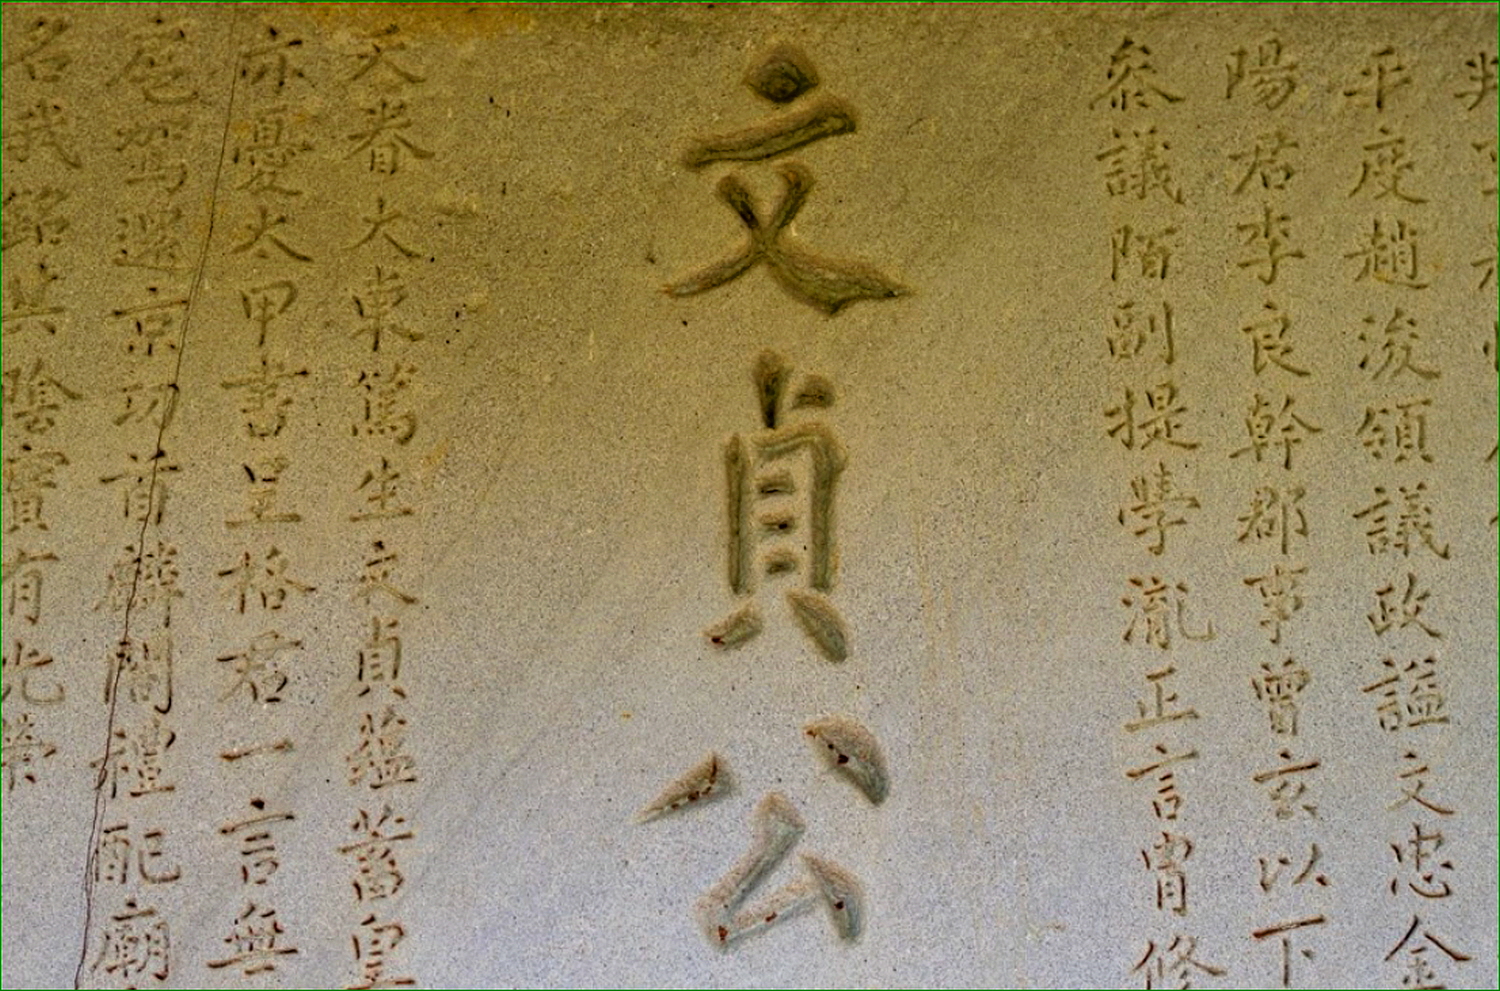 平度趙浚領議政謚文忠金
陽君李良幹郡事曾玄以下
參議陌副提學瀧正言胄修
文貞公
天眷大東篤生文貞蘊蓄皇
亦憂太甲書呈格君一言無
扈駕還京功首麟閣禮配廟
名我銘其陰實有光